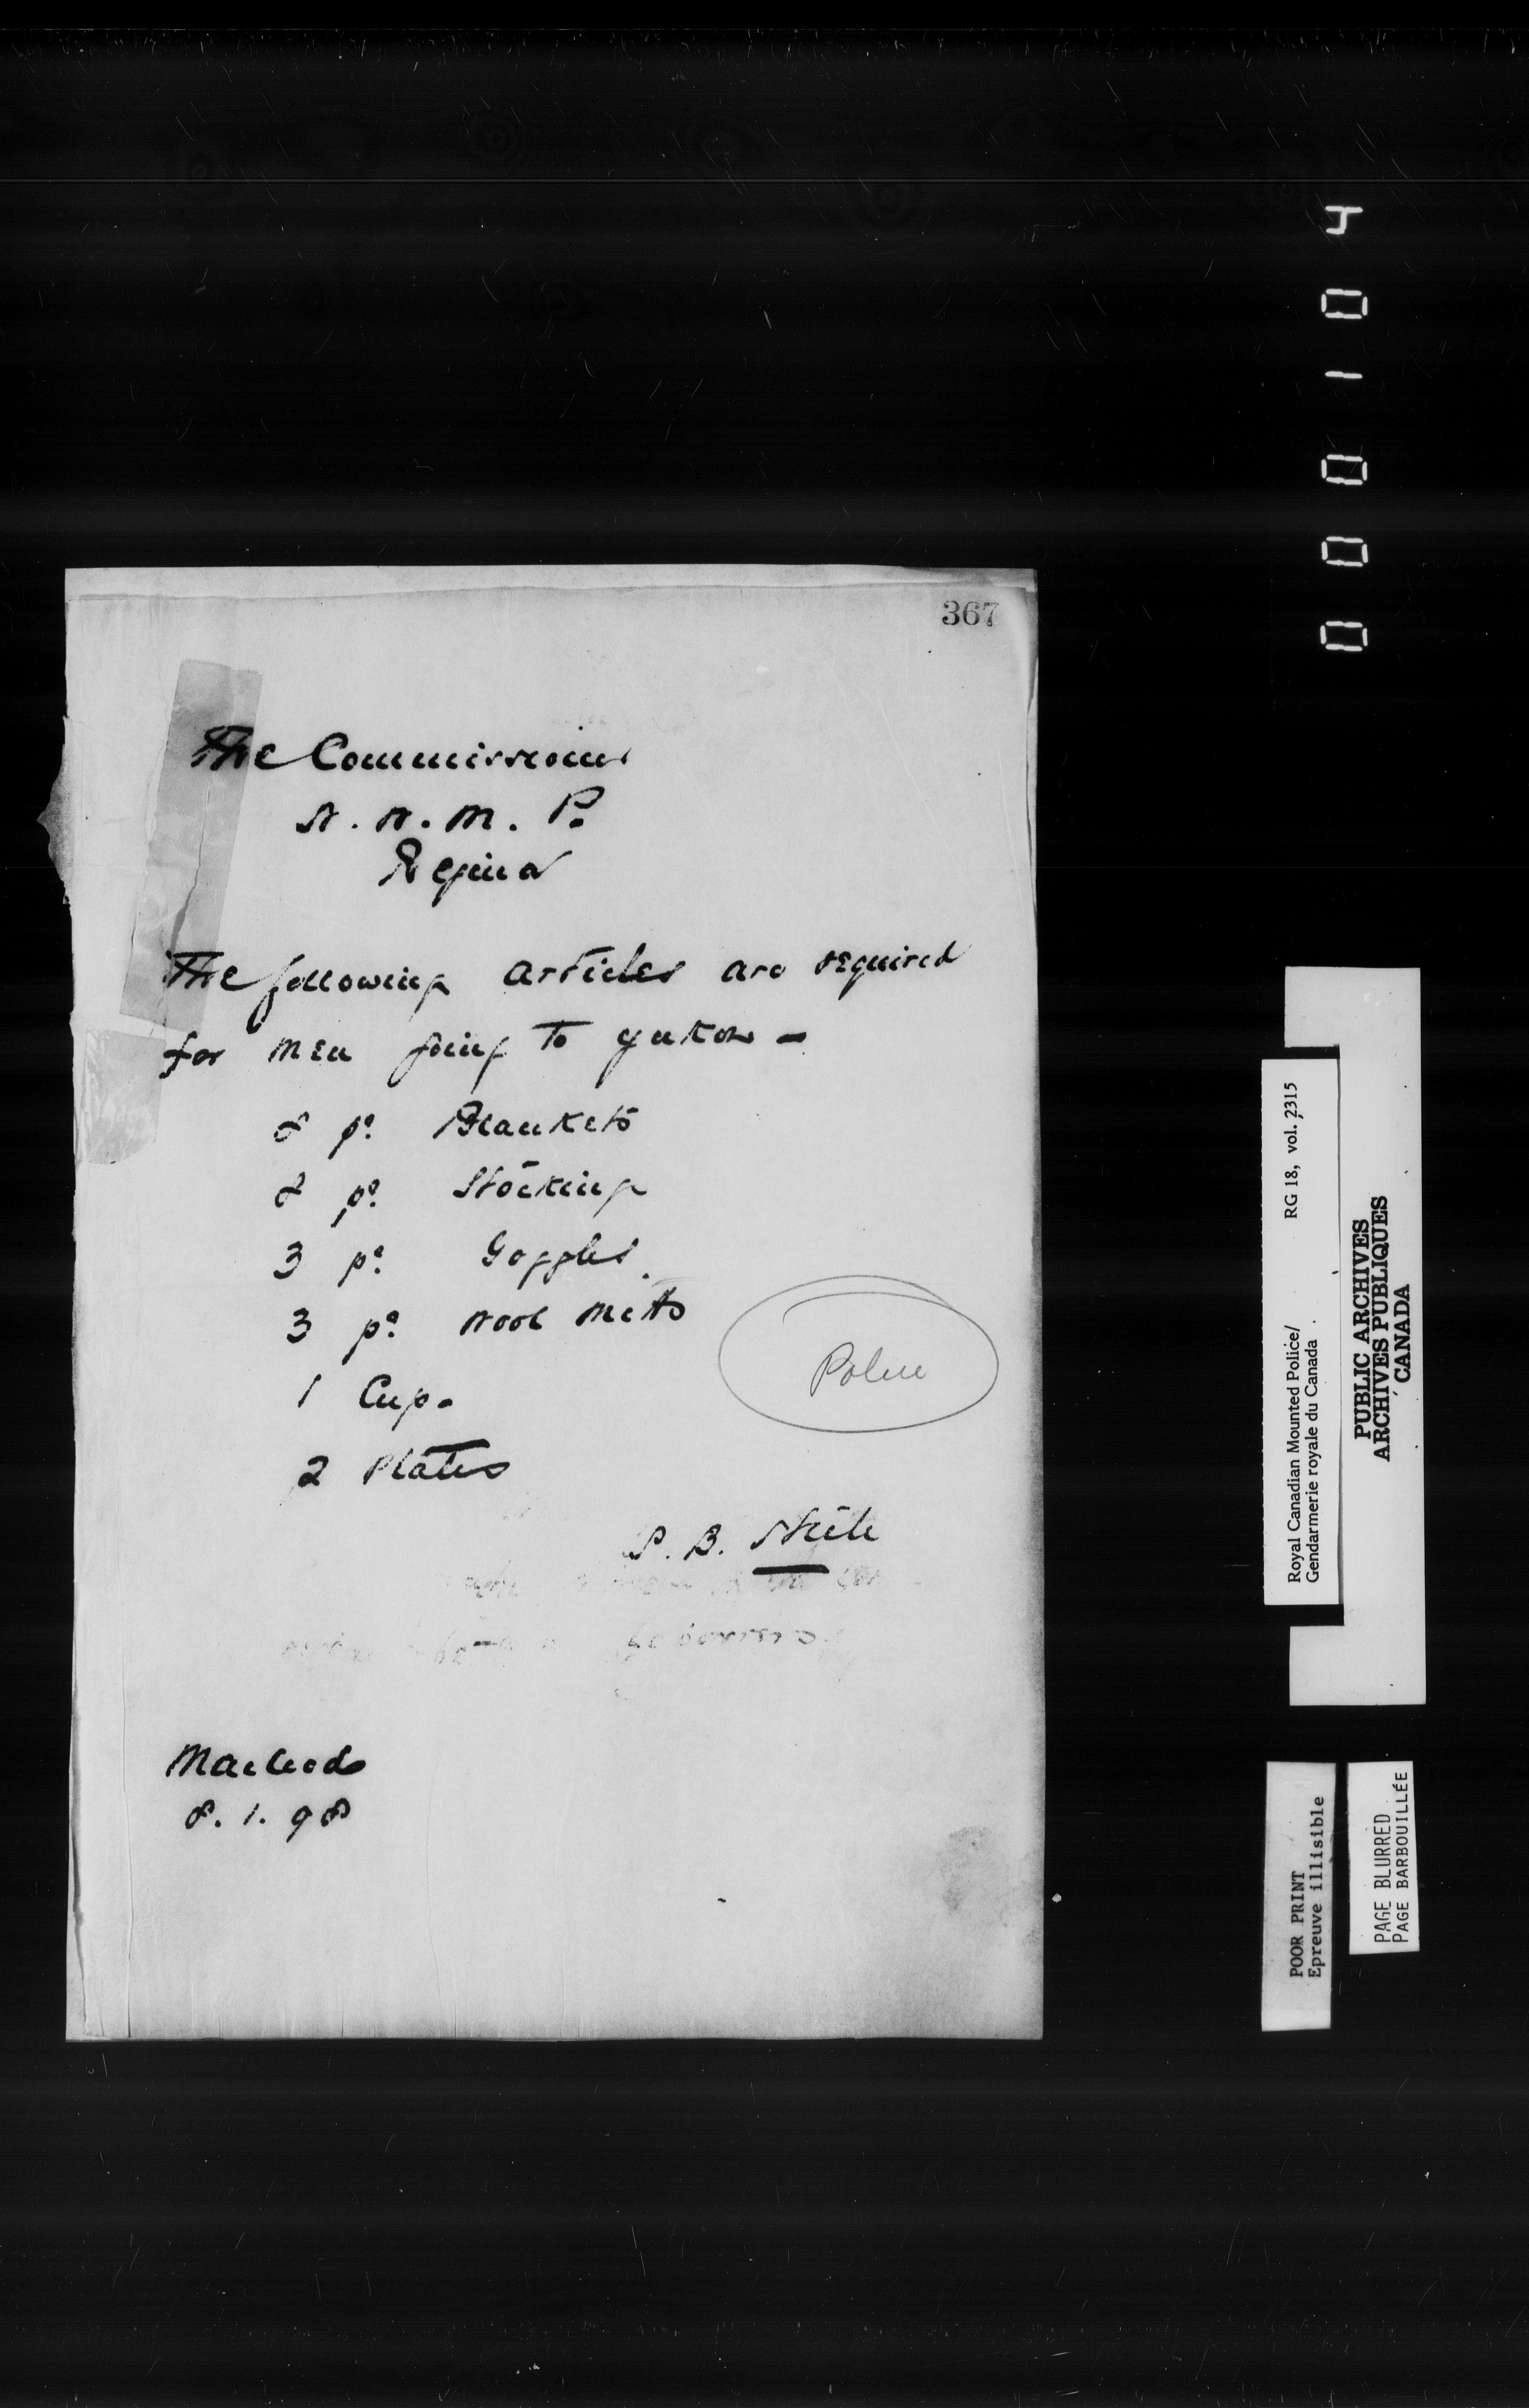 367
The Commissioner
N. W. M. P.
Regina
The following articles are required
for men going to Yukon -
8 pr. Blankets
8 pr. Stockings
3 pr. Goggles.
3 pr. Wool Mitts
1 Cup.
2 Plates
Police
S. B. Steele
Macleod
8. 1. 98
RG 18, vol. 2315
Royal Canadian Mounted Police/
Gendarmerie royale du Canada
PUBLIC ARCHIVES
ARCHIVES PUBLIQUES
CANADA
POOR PRINT
Epreuve illisible
PAGE BLURRED
PAGE BARBOUILLÉE